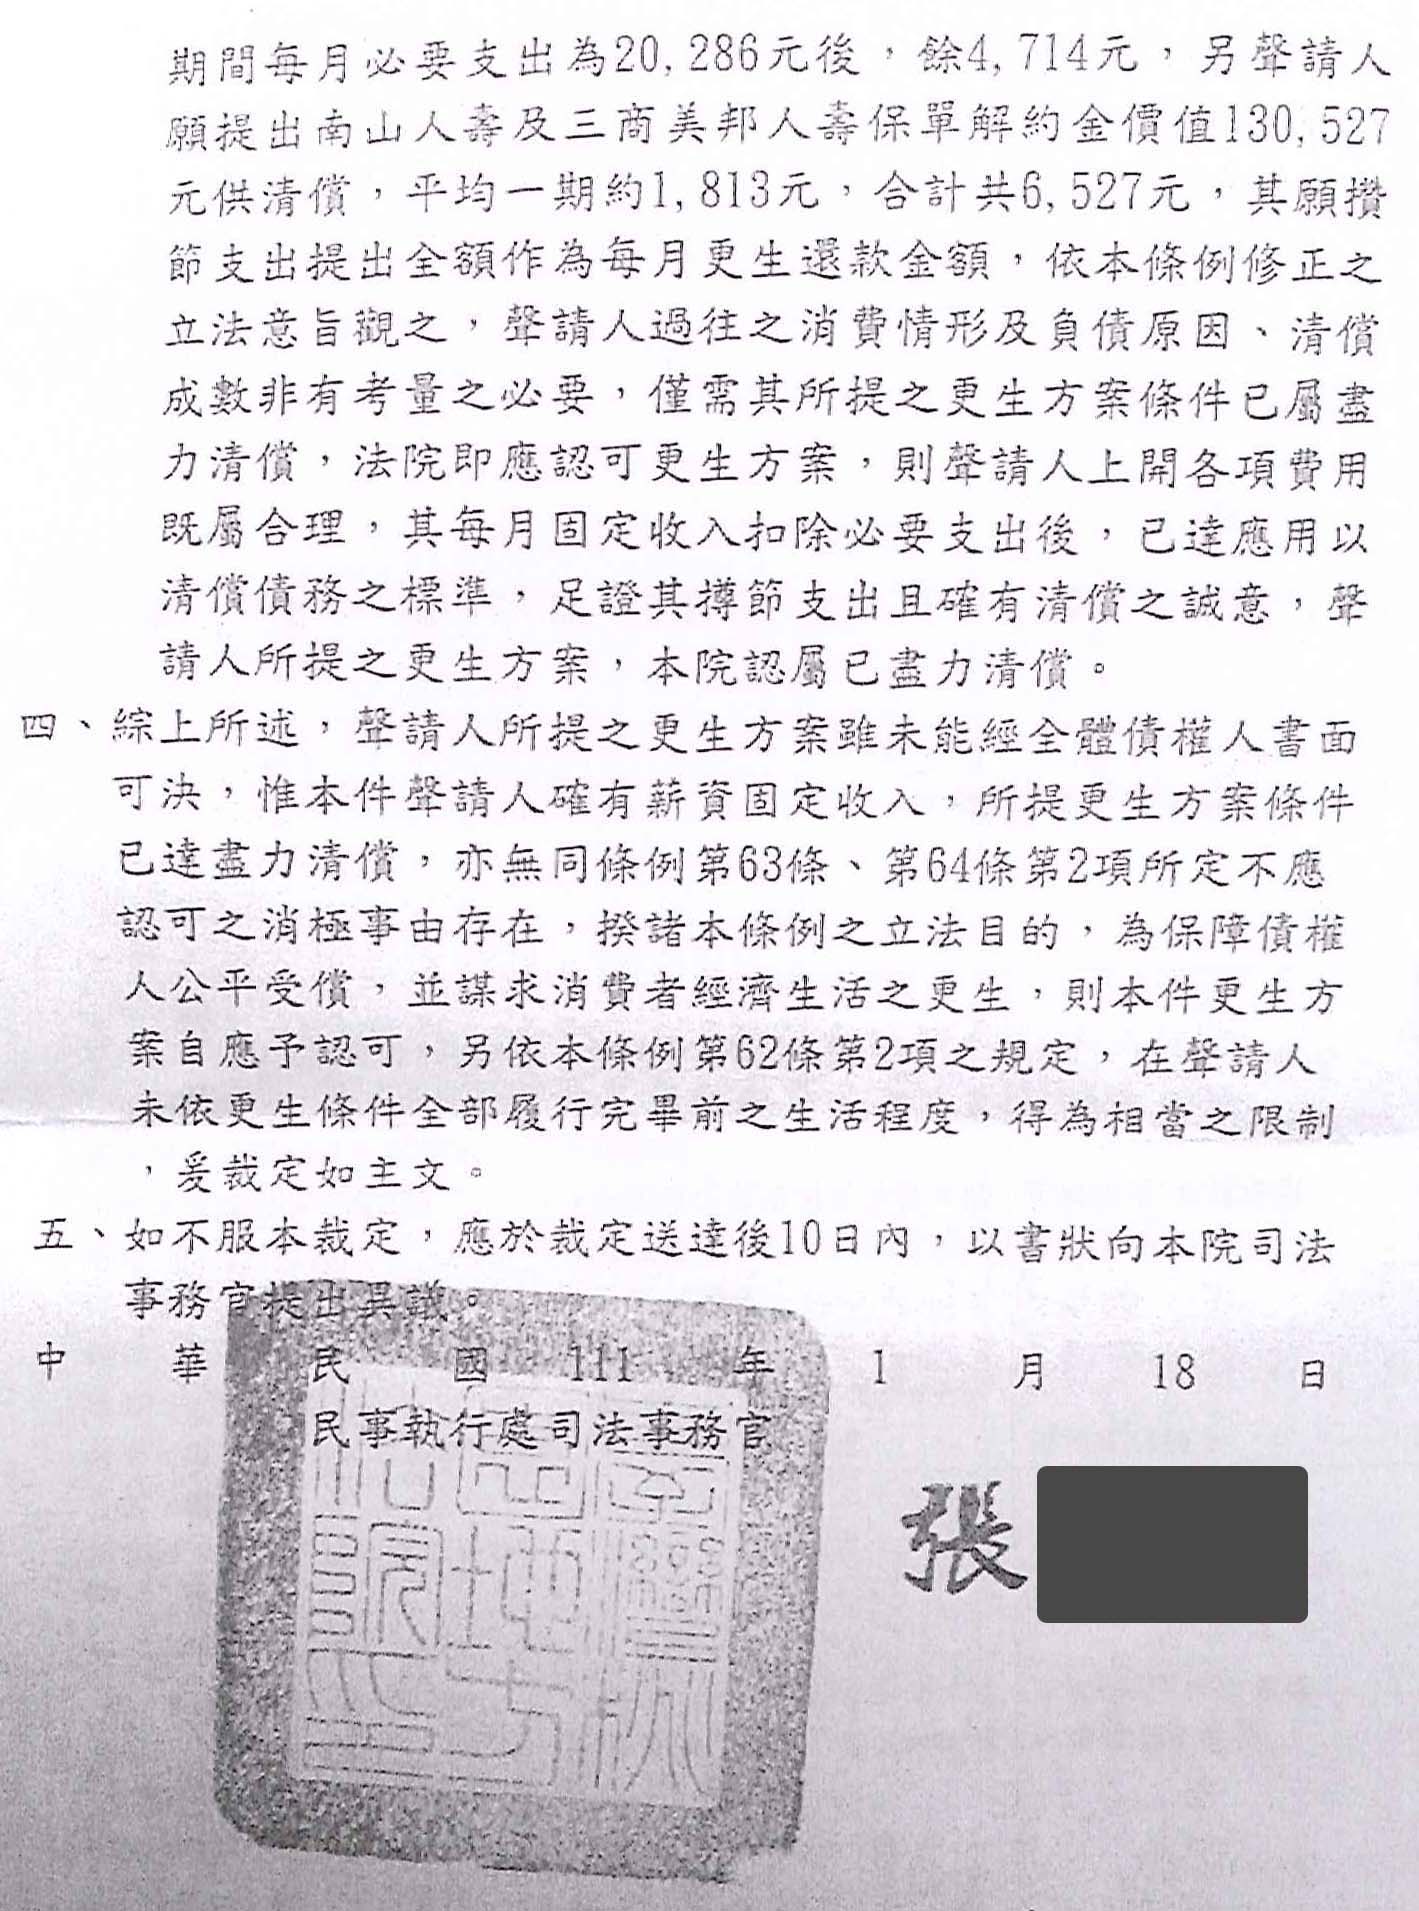 期間每月必要支出為20,286元後，餘4,714元，另聲請人
願提出南山人壽及三商美邦人壽保單解約金價值130,527
元供清償，平均一期約1,813元，合計共6,527元，其願攢
節支出提出全額作為每月更生還款金額，依本條例修正之
立法意旨觀之，聲請人過往之消費情形及負債原因、清償
成數非有考量之必要，僅需其所提之更生方案條件已屬盡
力清償，法院即應認可更生方案，則聲請人上開各項費用
既屬合理，其每月固定收入扣除必要支出後，已達應用以
清償債務之標準，足證其撙節支出且確有清償之誠意，聲
請人所提之更生方案，本院認屬已盡力清償。
四、綜上所述，聲請人所提之更生方案雖未能經全體債權人書面
可決，惟本件聲請人確有薪資固定收入，所提更生方案條件
已達盡力清償，亦無同條例第63條、第64條第2項所定不應
認可之消極事由存在，揆諸本條例之立法目的，為保障債權
人公平受償，並謀求消費者經濟生活之更生，則本件更生方
案自應予認可，另依本條例第62條第2項之規定，在聲請人
未依更生條件全部履行完畢前之生活程度，得為相當之限制
，爰裁定如主文。
五、如不服本裁定，應於裁定送達後10日內，以書狀向本院司法
事務官提出異議。
中華民國111年1月18日
民事執行處司法事務官
張